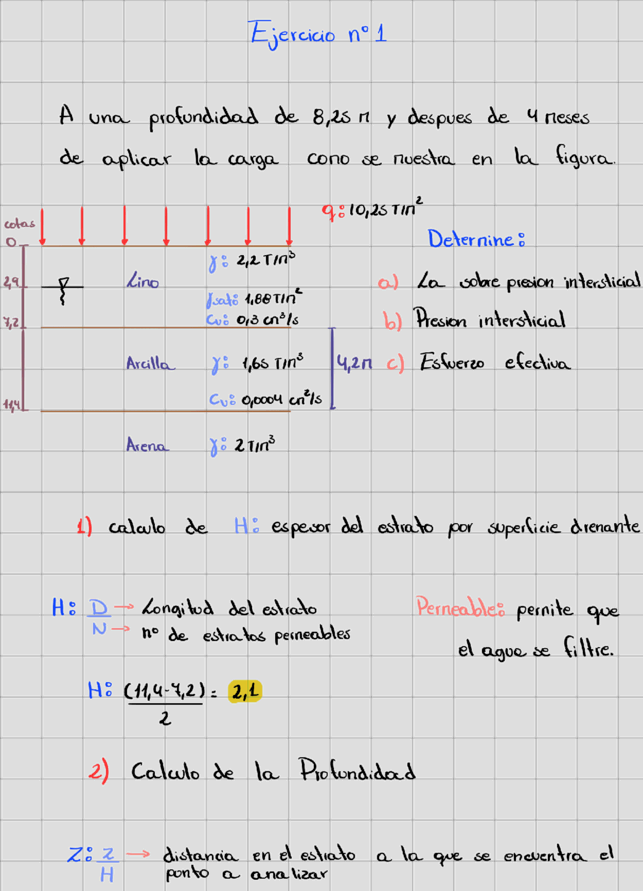 Ejercicio nº 1
A una profundidad de 8,25 m y despues de 4 meses
de aplicar la carga como se muestra en la figura.
q: 10,25 T/m²
cotas
0
Determine:
γ: 2,2 T/m³
2,9
Limo
a) La sobre presion intersticial
γsat: 1,88 T/m²
7,2
Cv: 0,3 cm²/s
b) Presion intersticial
Arcilla
γ: 1,65 T/m³
4,2m
c) Esfuerzo efectiva
Cv: 0,0004 cm²/s
11,4
Arena
γ: 2 T/m³
1) calculo de H: espesor del estrato por superficie drenante
H: D → Longitud del estrato
N → nº de estratos permeables
Permeable: permite que
el agua se filtre.
H: (11,4-7,2) = 2,1
2
2) Calculo de la Profundidad
Z: z → distancia en el estrato a la que se encuentra el
H punto a analizar